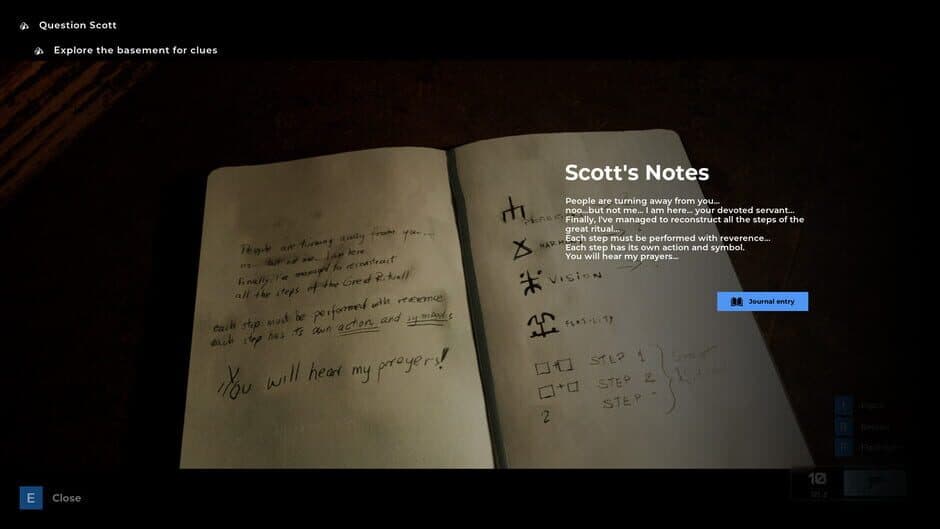 Question Scott
Explore the basement for clues
People are turning away from you...
no... but not me... I am here...
Finally I've managed to reconstruct
all the steps of the Great Ritual!
each step must be performed with reverence
each step has its own action and symbols
You will hear my prayers!
VISION
FERTILITY
STEP 1
STEP 2
STEP
2
Scott's Notes
People are turning away from you...
noo...but not me... I am here... your devoted servant...
Finally, I've managed to reconstruct all the steps of the
great ritual...
Each step must be performed with reverence...
Each step has its own action and symbol.
You will hear my prayers...
Journal entry
10
E Close